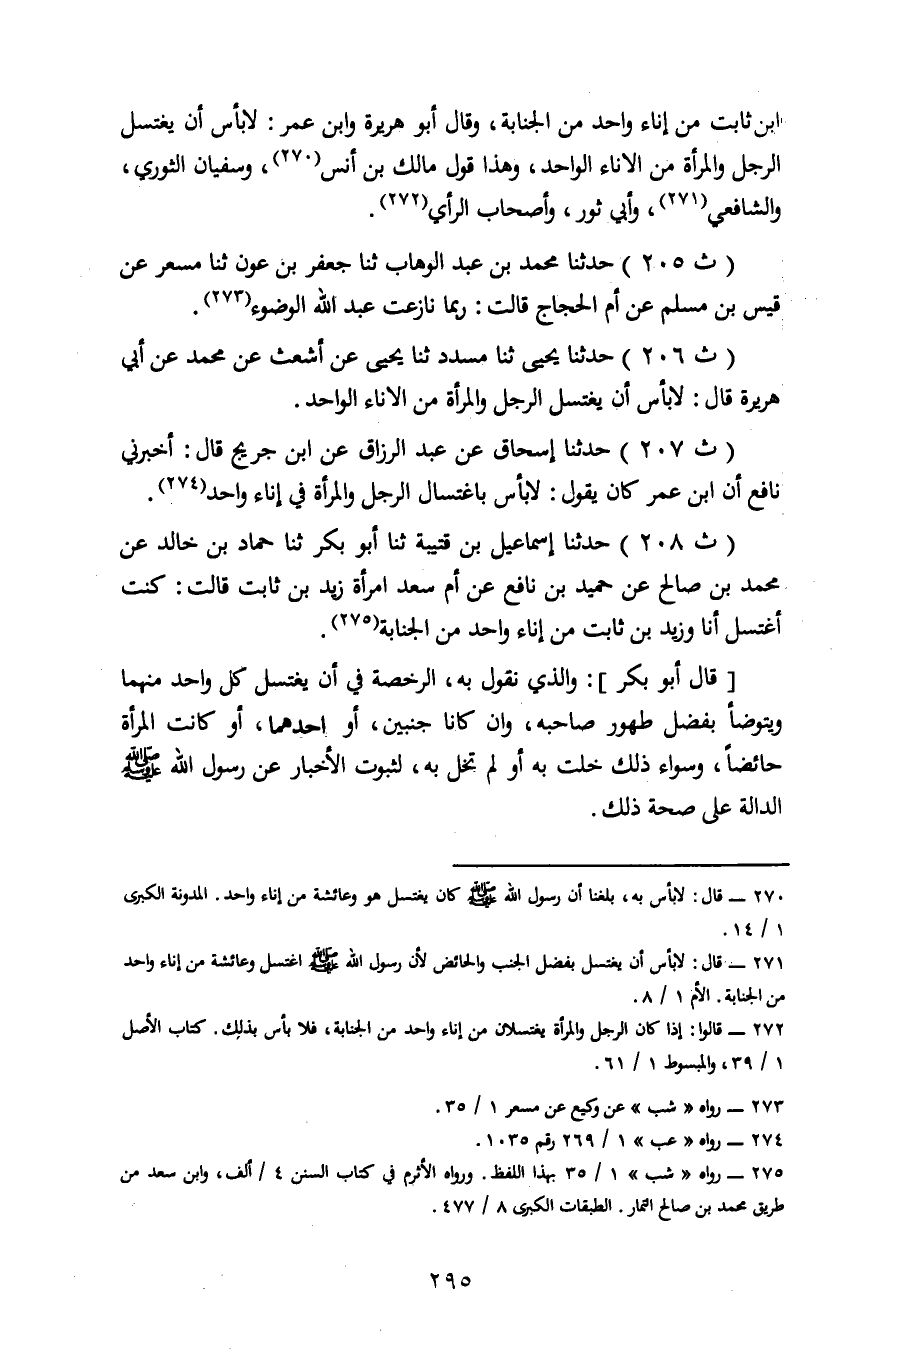 ابن ثابت من إناء واحد من الجنابة، وقال أبو هريرة وابن عمر : لابأس أن يغتسل
الرجل والمرأة من الاناء الواحد، وهذا قول مالك بن أنس(٢٧٠)، وسفيان الثوري،
والشافعي(٢٧١)، وأبي ثور، وأصحاب الرأي(٢٧٢).
( ث ٢٠٥ ) حدثنا محمد بن عبد الوهاب ثنا جعفر بن عون ثنا مسعر عن
قيس بن مسلم عن أم الحجاج قالت : ربما نازعت عبد الله الوضوء(٢٧٣).
( ث ٢٠٦ ) حدثنا يحيى ثنا مسدد ثنا يحيى عن أشعث عن محمد عن أبي
هريرة قال : لابأس أن يغتسل الرجل والمرأة من الاناء الواحد.
( ث ٢٠٧ ) حدثنا إسحاق عن عبد الرزاق عن ابن جريج قال : أخبرني
نافع أن ابن عمر كان يقول : لابأس باغتسال الرجل والمرأة في إناء واحد(٢٧٤).
( ث ٢٠٨ ) حدثنا إسماعيل بن قتيبة ثنا أبو بكر ثنا حماد بن خالد عن
محمد بن صالح عن حميد بن نافع عن أم سعد امرأة زيد بن ثابت قالت : كنت
أغتسل أنا وزيد بن ثابت من إناء واحد من الجنابة(٢٧٥).
[ قال أبو بكر ] : والذي نقول به، الرخصة في أن يغتسل كل واحد منهما
ويتوضأ بفضل طهور صاحبه، وان كانا جنبين، أو احدهما، أو كانت المرأة
حائضاً، وسواء ذلك خلت به أو لم تخل به، لثبوت الأخبار عن رسول الله ﷺ
الدالة على صحة ذلك.
٢٧٠ ــ قال : لابأس به، بلغنا أن رسول الله ﷺ كان يغتسل هو وعائشة من إناء واحد. المدونة الكبرى
١ / ١٤.
٢٧١ ــ قال : لابأس أن يغتسل بفضل الجنب والحائض لأن رسول الله ﷺ اغتسل وعائشة من إناء واحد
من الجنابة. الأم ١ / ٨.
٢٧٢ ــ قالوا : إذا كان الرجل والمرأة يغتسلان من إناء واحد من الجنابة، فلا بأس بذلك. كتاب الأصل
١ / ٣٩، والمبسوط ١ / ٦١.
٢٧٣ ــ رواه « شب » عن وكيع عن مسعر ١ / ٣٥.
٢٧٤ ــ رواه « عب » ١ / ٢٦٩ رقم ١٠٣٥.
٢٧٥ ــ رواه « شب » ١ / ٣٥ بهذا اللفظ. ورواه الأثرم في كتاب السنن ٤ / ألف، وابن سعد من
طريق محمد بن صالح التمار. الطبقات الكبرى ٨ / ٤٧٧.
٢٩٥